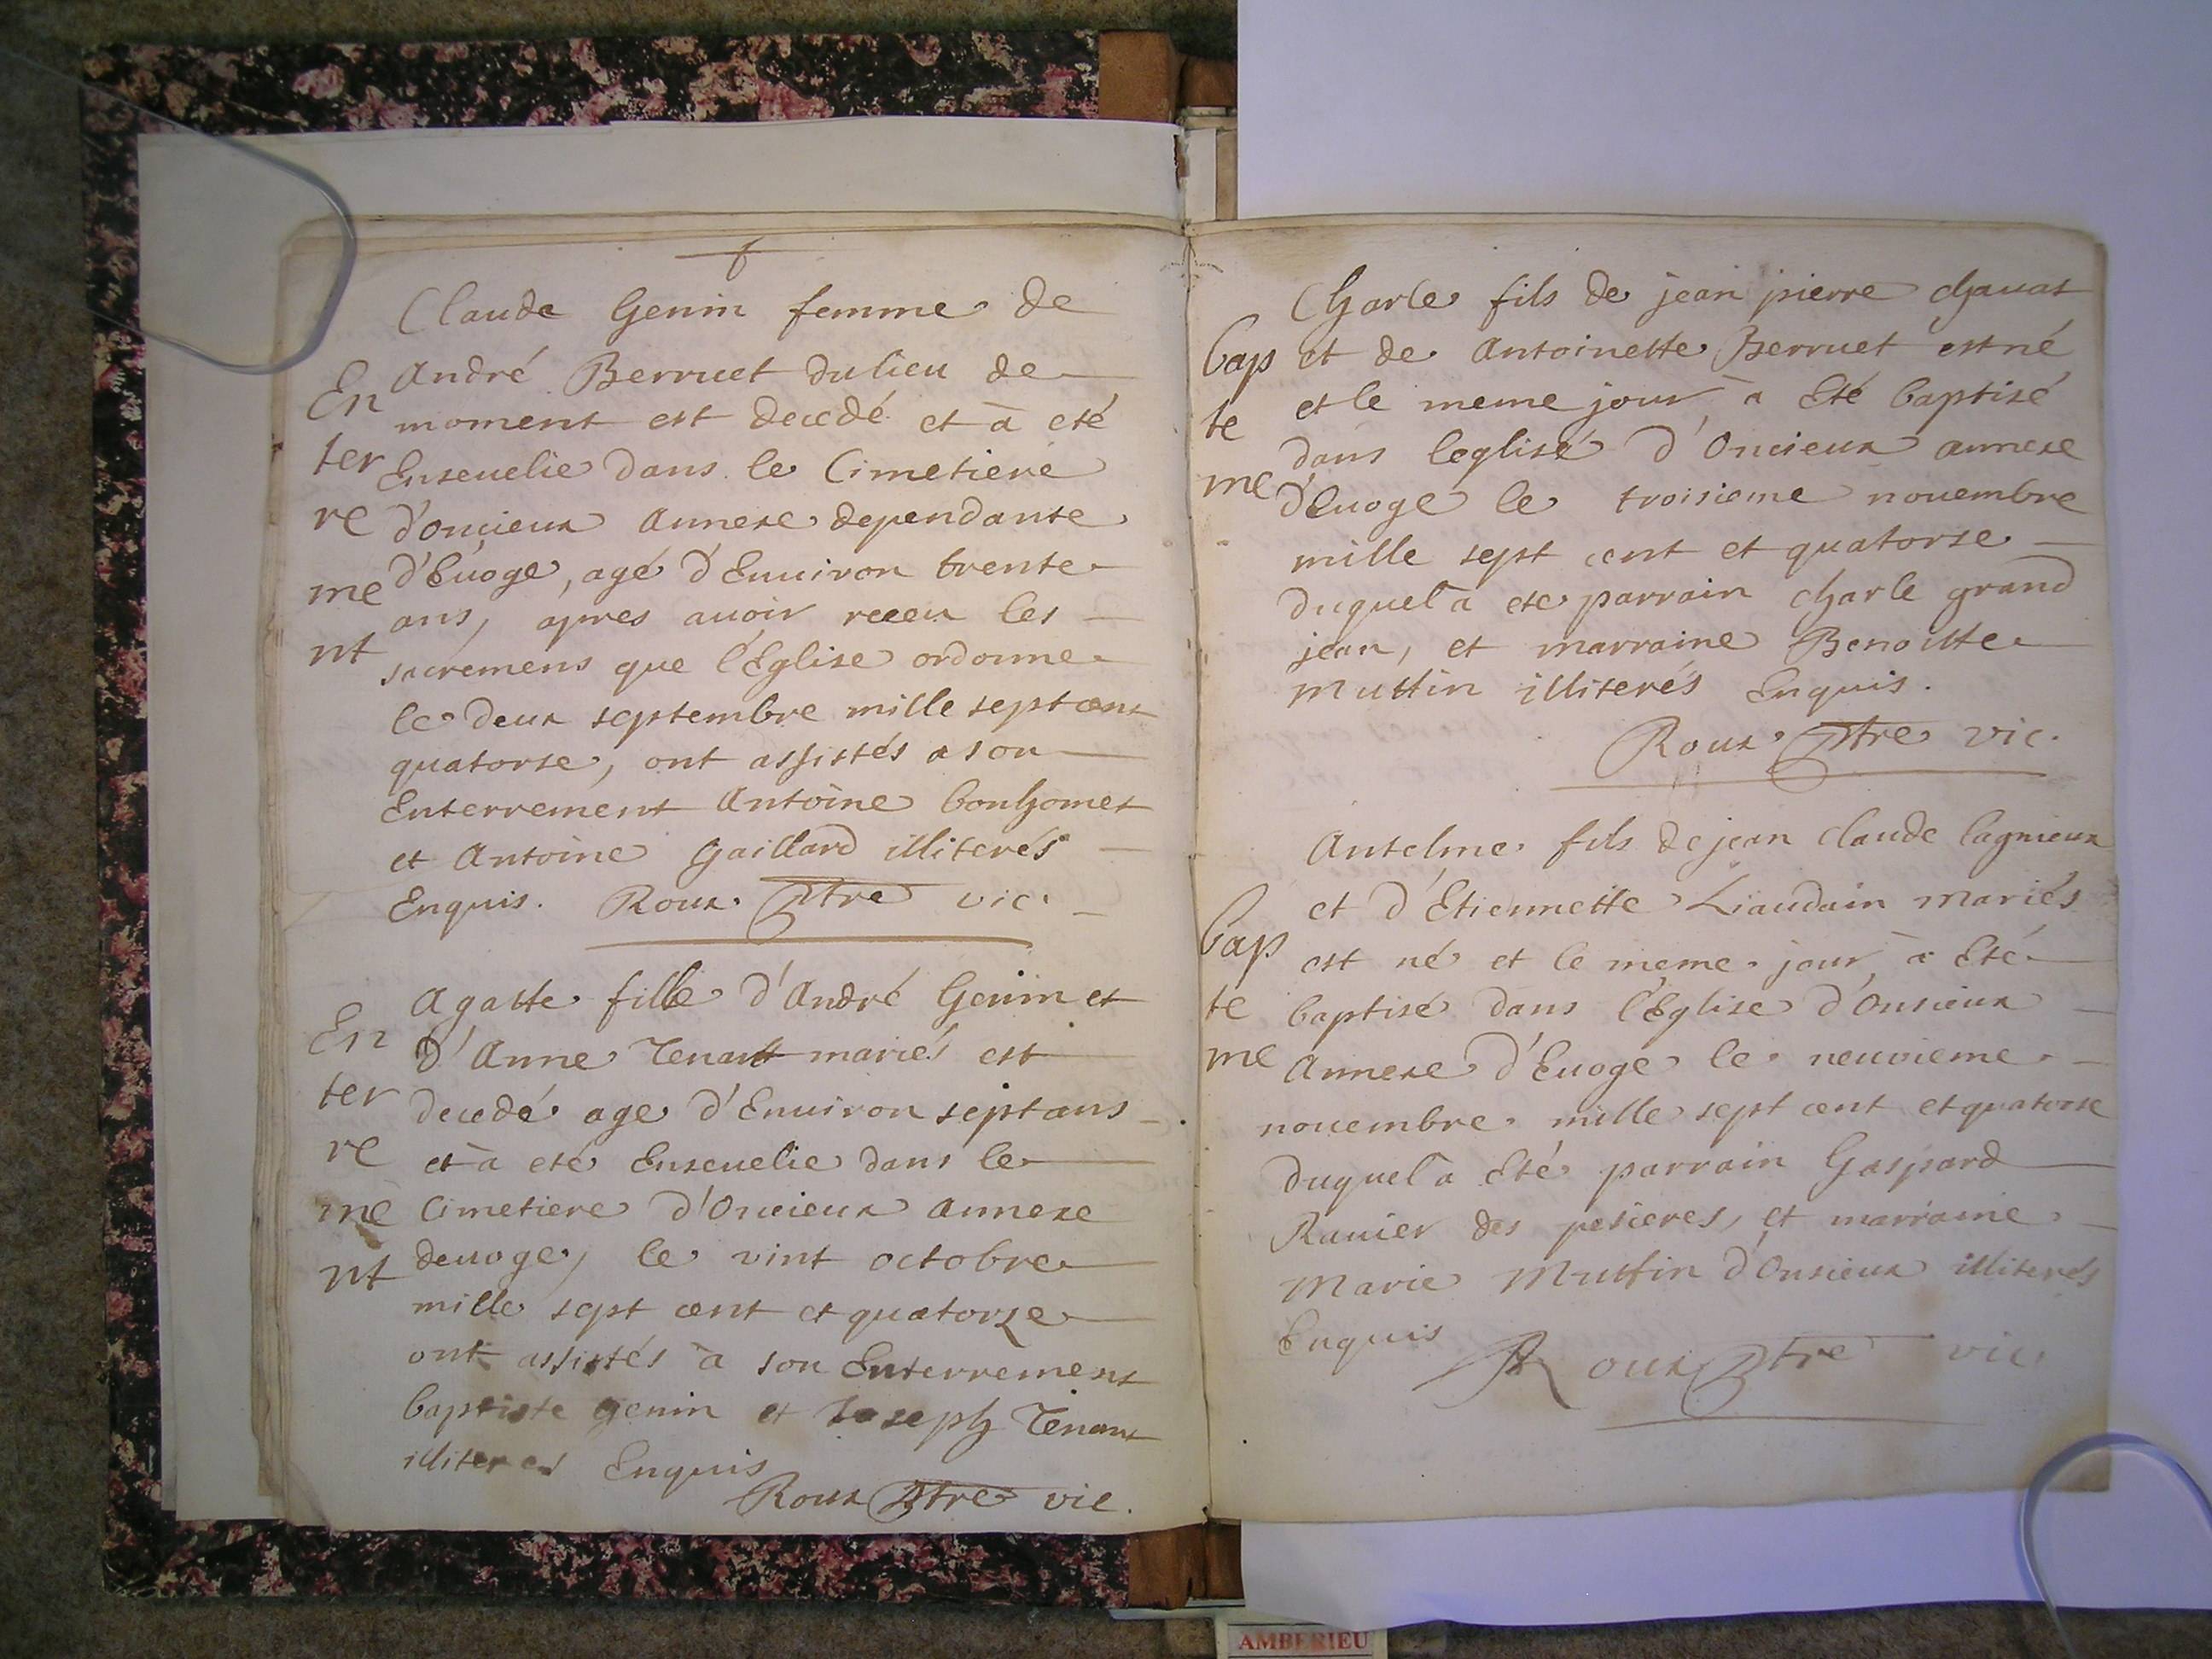 Claude Genin femme de
En
André Berruet du lieu de
moment est decedé et à eté
ter
Enseuelie dans le Cimetiere
re
d'oncieux Annexe dependante
me
d'Euoge, agé d'Enuiron trente
ans, apres auoir receu les
nt
sacremens que l'Eglise ordonne
le deux septembre mille sept cent
quatorse, ont assistés a son
Enterrement Antoine bonhomet
et Antoine Gaillard illiterés
Enquis. Roux ptre vic.
Agatte fille d'André Genin et
En
d'Anne Tenant mariés est
ter
decedé age d'Enuiron sept ans
re
et à eté Enseuelie dans le
me
Cimetiere d'Oncieux annexe
nt
deuoge, le vint octobre
mille sept cent et quatorze
ont assistés à son Enterrement
baptiste genin et Joseph Tenant
illiteres Enquis
Roux ptre vic.
Charle fils de jean pierre chauat
bap
et de Antoinette Berruet est né
te
et le meme jour à Eté baptisé
me
dans leglise d'Oncieux annexe
d'Euoge le troisieme nouembre
mille sept cent et quatorse
duquel a eté parrain charle grand
jean, et marraine Benoitte
Muttin illiterés Enquis.
Roux ptre vic.
Antelme fils de jean claude lagnieux
et d'Etiennette Liaudain mariés
bap
est né et le meme jour à Eté
te
baptisé dans l'Eglise d'Onsieux
me
Annexe d'Euoge le neuvieme
nouembre mille sept cent et quatorse
duquel a Eté parrain Gaspard
Rauier des pesieres, et marraine
Marie Muttin d'Onsieux illiterés
Enquis
Roux ptre vic.
AMBERIEU